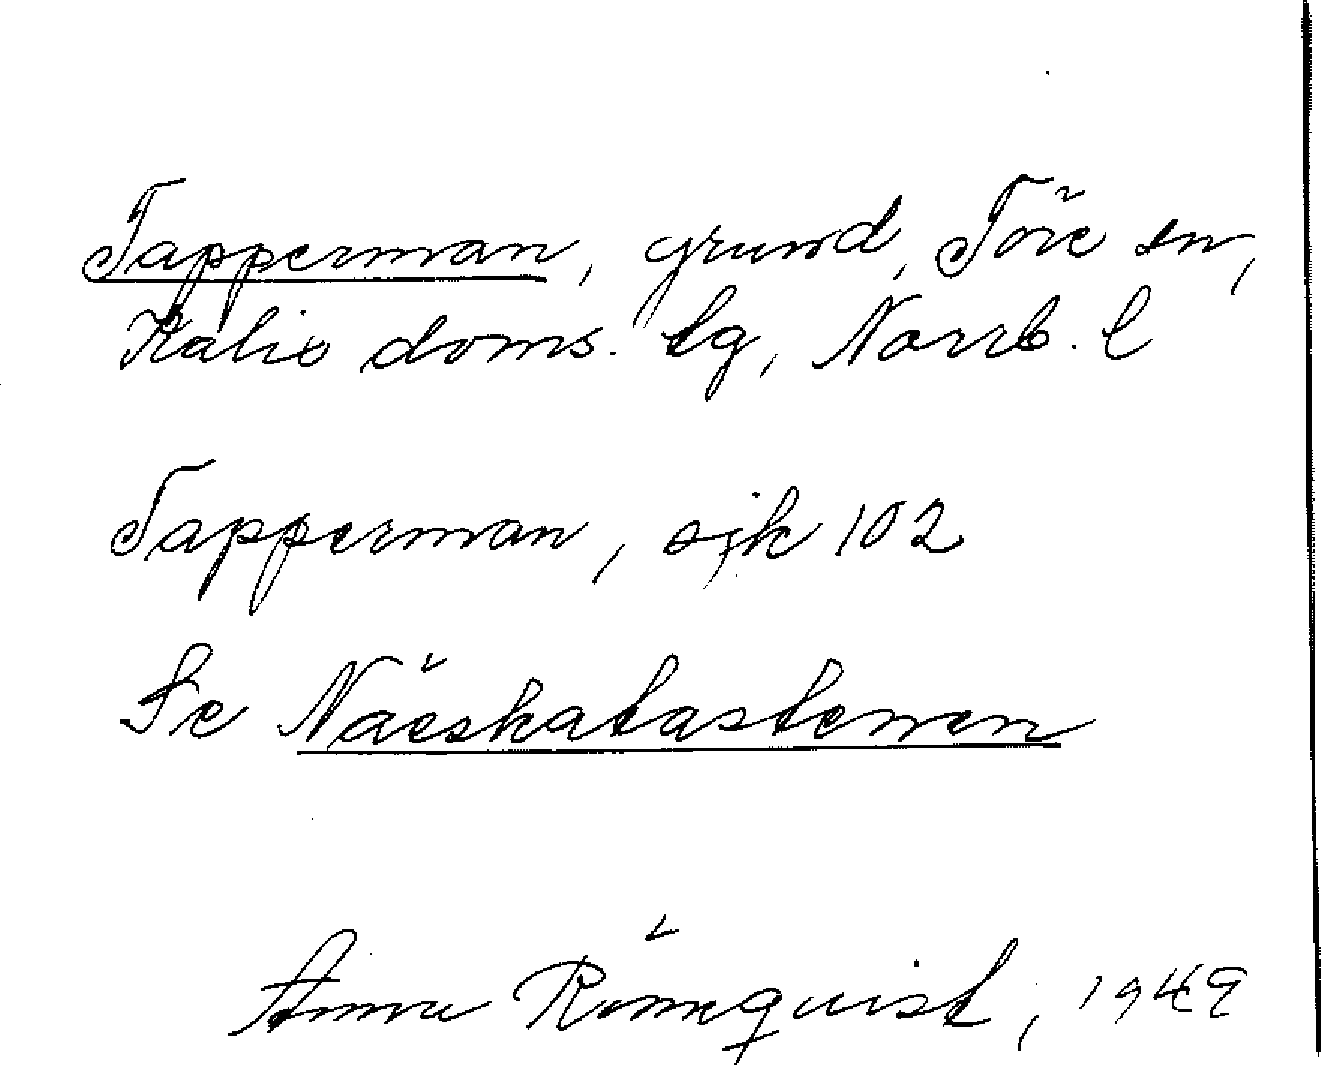 Tapperman, grund, Töre sn,
Kalix doms. lg, Norrb. l
Tapperman, sjk 102
Se Näeskatastenen
Anna Rönnquist, 1949